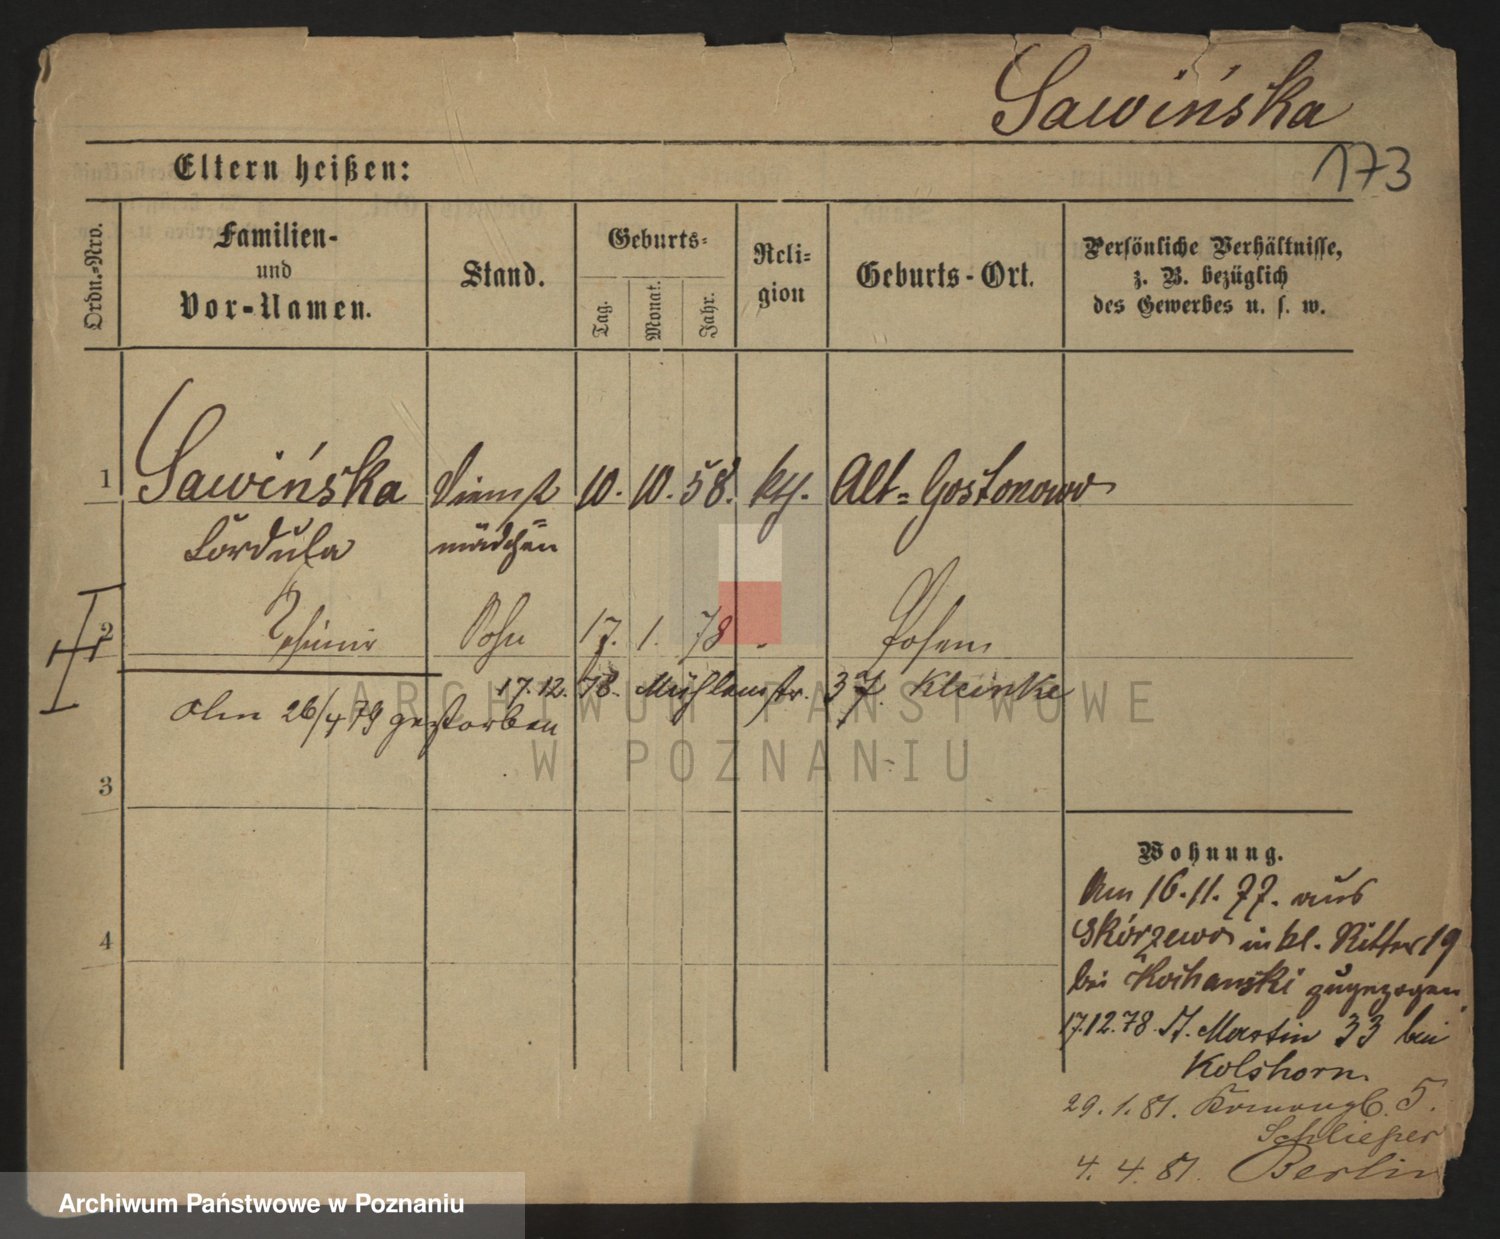 Sawińska
173
Eltern heißen:
Ordn.-Nro.
Familien-
und
Vor-Namen.
Stand.
Geburts-
Tag.
Monat.
Jahr.
Reli-
gion
Geburts-Ort.
Persönliche Verhältnisse,
z. B. bezüglich
des Gewerbes u. s. w.
1 Sawińska Dienst 10. 10. 58. kth. Alt-Gostonowo
Cordula mädchen
2 Sohn 17. 1. 78 Posen
17.12.78. Mühlenstr. 37. Kleinke
Am 26/4 79 gestorben
ARCHIWUM PAŃSTWOWE
W POZNANIU
3
4
Wohnung.
Am 16.11.77. aus
Skórzewo in kl. Ritter 19
bei Kochanski zugezogen
17.12.78. St. Martin 33 bei
Kolshorn.
29.1.81. 5.
Schlieper
4.4.81. Berlin
Archiwum Państwowe w Poznaniu